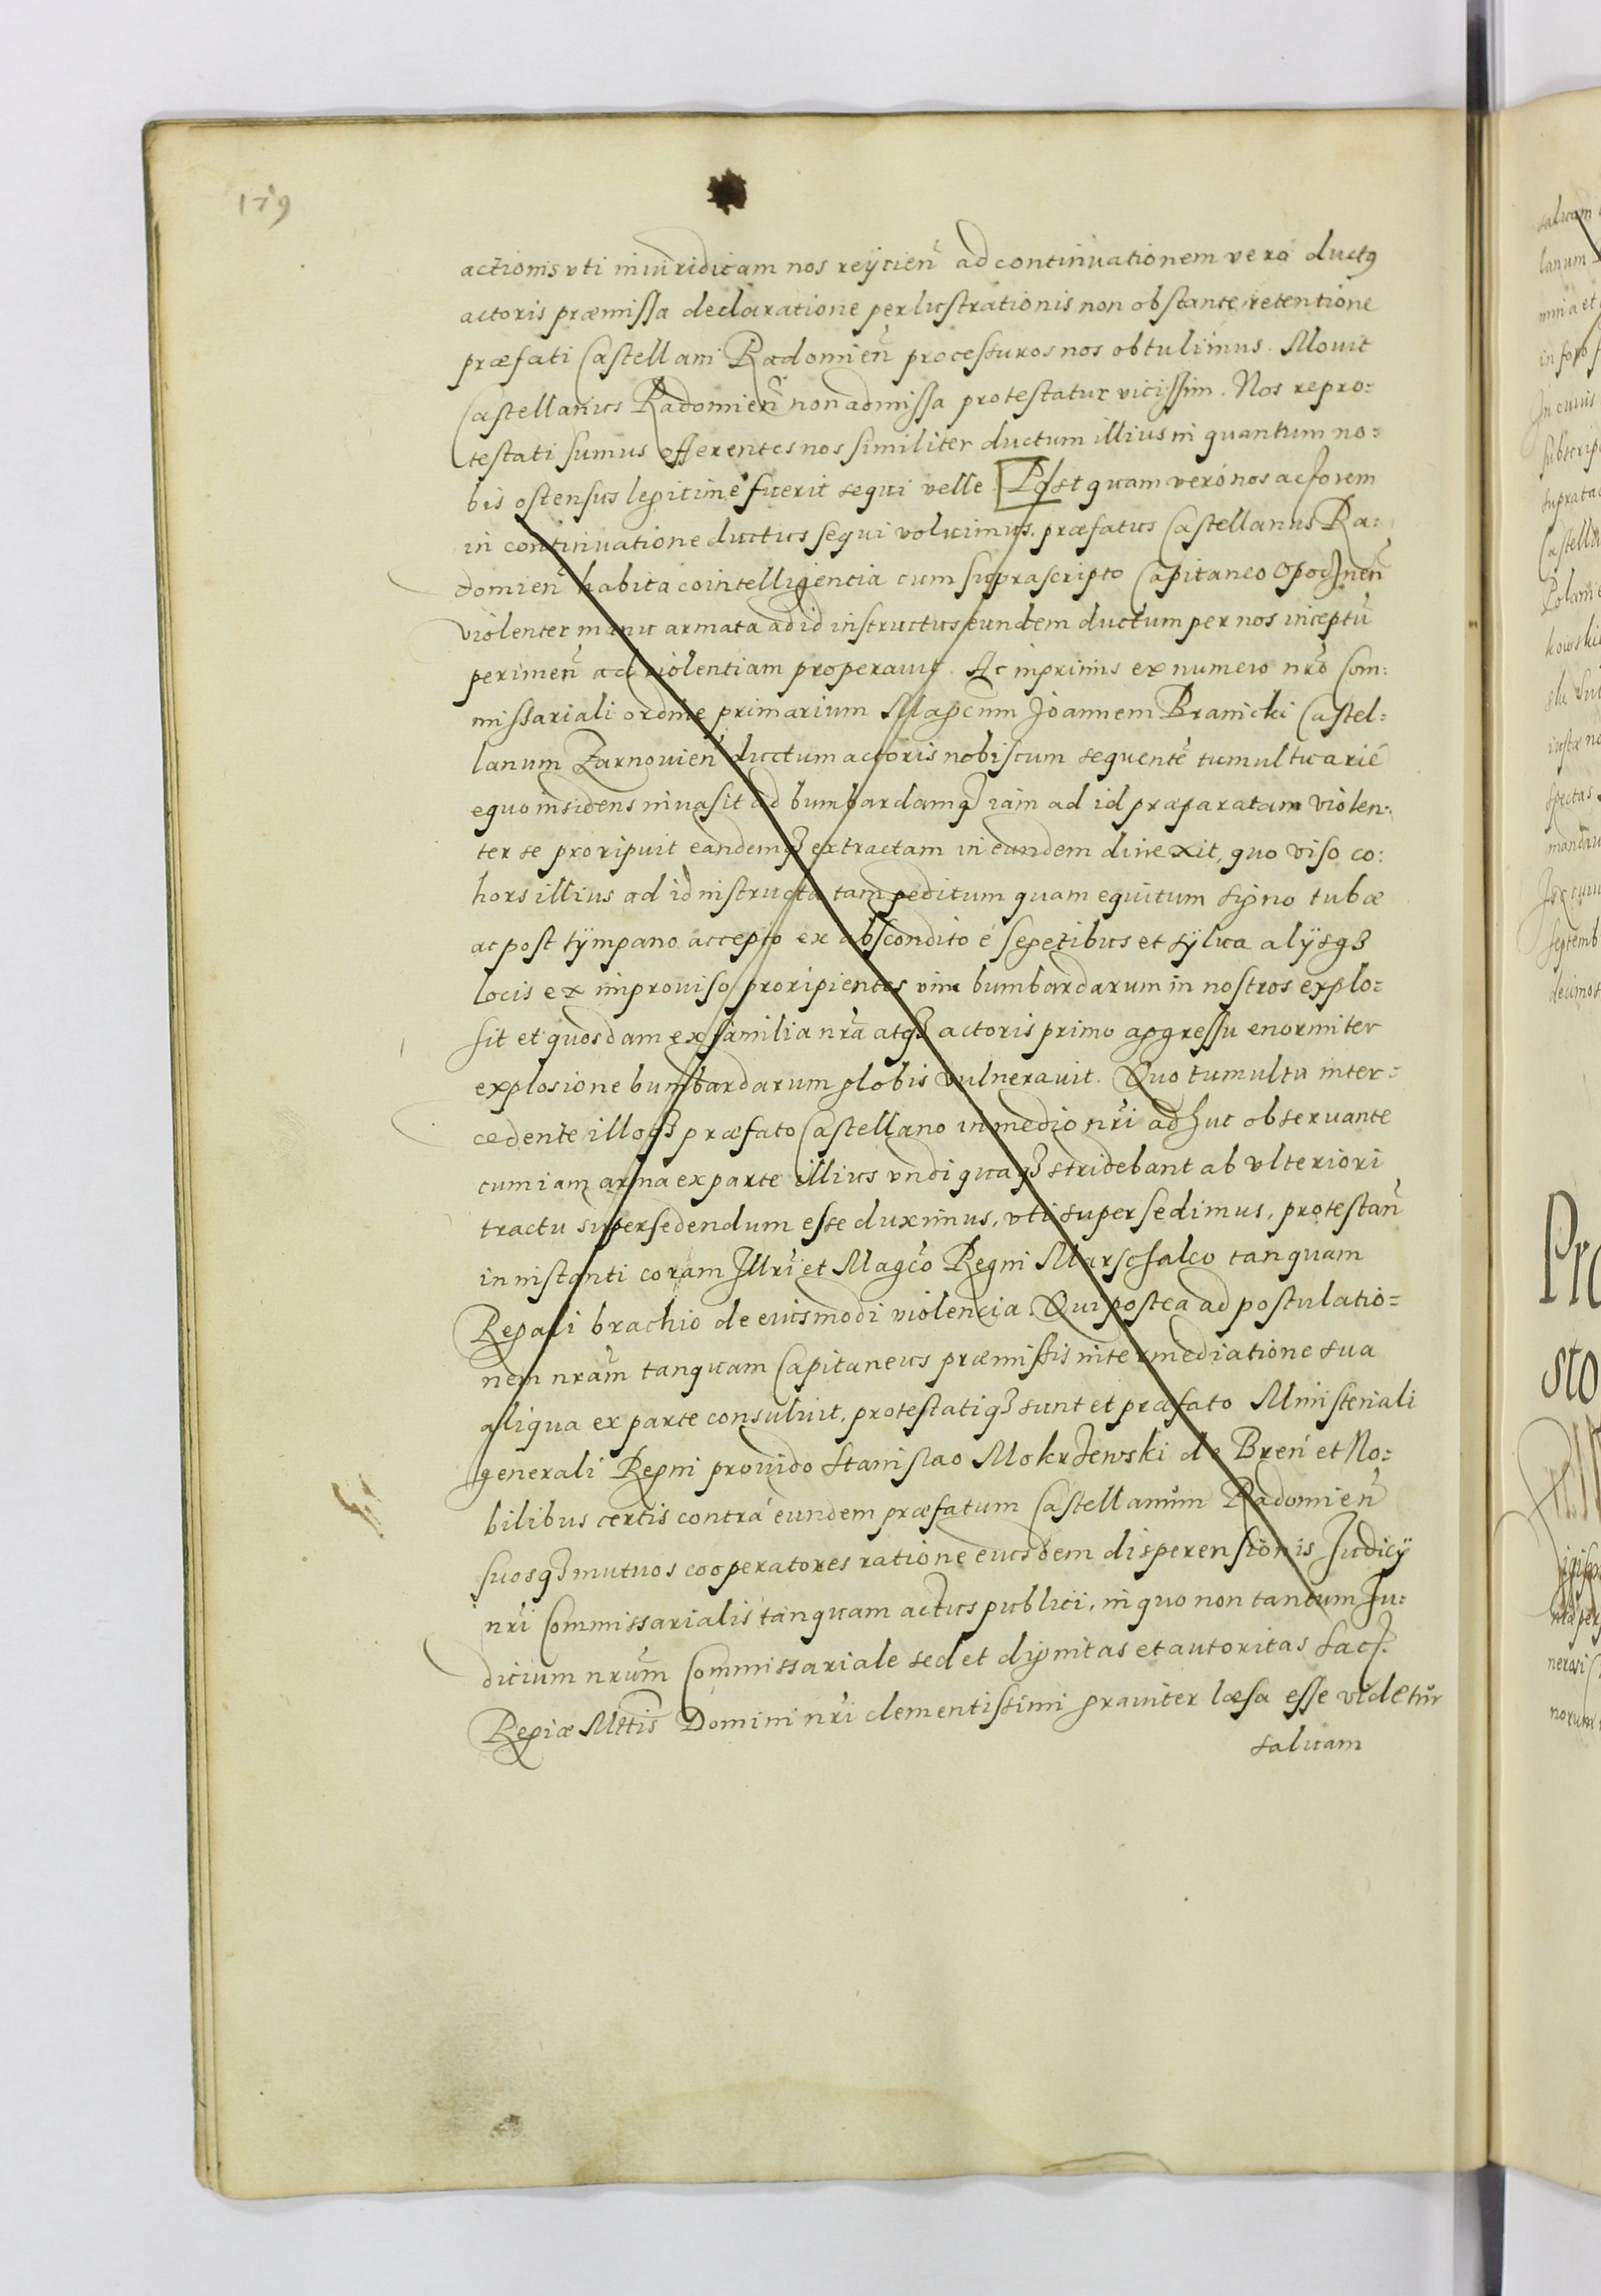 179
actionis vti iniuridicam nos reÿcien̄ ad continuationem vero ductꝯ
actoris præmissa declaratione perlustrationis non obstante retentione
præfati Castellani Radomien̄ processuros nos obtulimus. Mouit
Castellanus Radomien̄ non admissa protestatur vicissim. Nos repro:
testati sumus offerentes nos similiter ductum illius in quantum no:
bis ostensus legitimè fuerit sequi velle. Postquam verò nos actorem
in continuatione ductus sequi voluimus, præfatus Castellanus Ra:
domien̄ habita cointelligentia cum suprascripto Capitaneo Opocznen̄
violenter manu armata ad id instructus eundem ductum per nos inceptū
perimen̄ ad violentiam properauit. Ac inprimis ex numero nr̄o Com:
missariali ordine primarium Magcum Joannem Branicki Castel:
lanum Zarnouien̄ ductum actoris nobiscum sequentē tumultuariè
equo insidens inuasit ad bumbardamqꝫ iam ad id præparatam violen:
ter se proripuit eandemqꝫ extractam in eundem direxit, quo viso co:
hors illius ad id instructa tam peditum quam equitum signo tubæ
ac post tÿmpano accepto ex abscondito è segetibus et sÿlua alÿsqꝫ
locis ex improuiso proripientes vim bumbardarum in nostros explo:
sit et quosdam ex familia nr̄a atqꝫ actoris primo aggressu enormiter
explosione bumbardarum globis vulnerauit. Quo tumultu inter:
cedente illoqꝫ præfato Castellano in medio nr̄i adhuc obseruante
cum iam arma ex parte illius vndiquaqꝫ stridebant ab vlteriori
tractu supersedendum esse duximus, vti supersedimus, protestan̄
in instanti coram Illr̄i et Magc̄o Regni Marschalco tanquam
Regali brachio de eiusmodi violencia. Qui postea ad postulatio:
nem nr̄am tanquam Capitaneus præmissis intermediatione sua
aliqua ex parte consuluit, protestatiqꝫ sunt et præfato Ministeriali
generali Regni prouido Stanislao Mokrzewski de Breń et No:
bilibus certis contrà eundem præfatum Castellanum Radomien̄
suosqꝫ mutuos cooperatores ratione eiusdem dispersionis Judicÿ
nr̄i Commissarialis tanquam actus publici, in quo non tantum Ju:
dicium nr̄um Commissariale sed et dignitas et autoritas Sacr.
Regiæ Mttis Domini nr̄i clementissimi grauiter læsa esse videtur
saluam